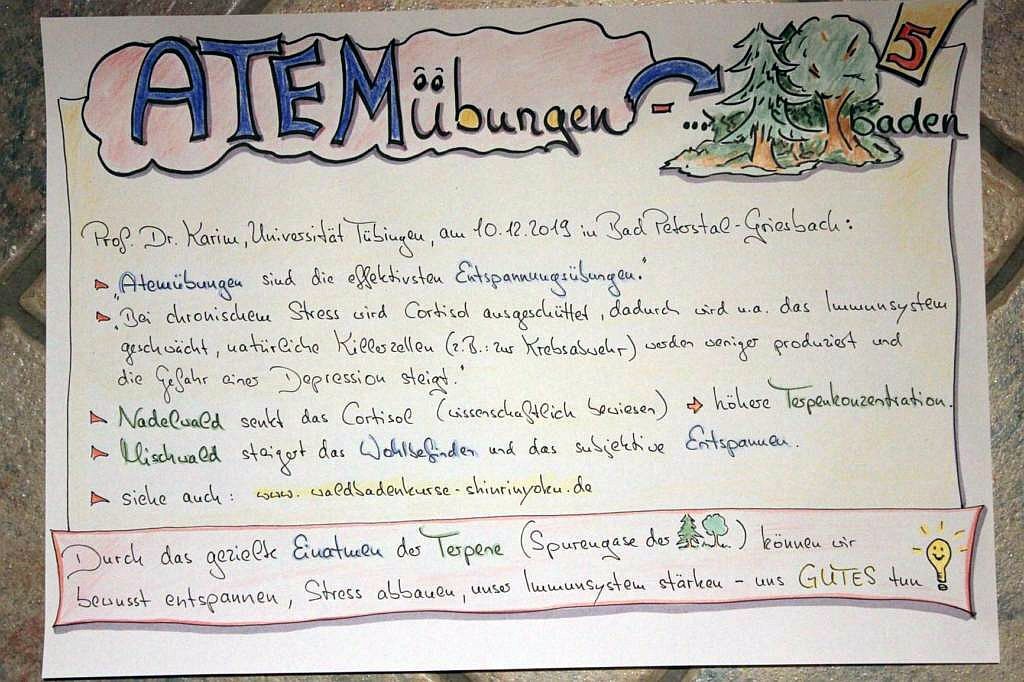 ATEMübungen - ... baden 5
Prof. Dr. Karim, Universität Tübingen, am 10.12.2019 in Bad Peterstal-Griesbach:
"Atemübungen sind die effektivsten Entspannungsübungen."
"Bei chronischem Stress wird Cortisol ausgeschüttet, dadurch wird u.a. das Immunsystem
geschwächt, natürliche Killerzellen (z.B.: zur Krebsabwehr) werden weniger produziert und
die Gefahr einer Depression steigt."
Nadelwald senkt das Cortisol (wissenschaftlich bewiesen) ➡ höhere Terpenkonzentration.
Mischwald steigert das Wohlbefinden und das subjektive Entspannen.
siehe auch: www.waldbadenkurse-shinrinyoku.de
Durch das gezielte Einatmen der Terpene (Spurengase der ) können wir
bewusst entspannen, Stress abbauen, unser Immunsystem stärken - uns GUTES tun